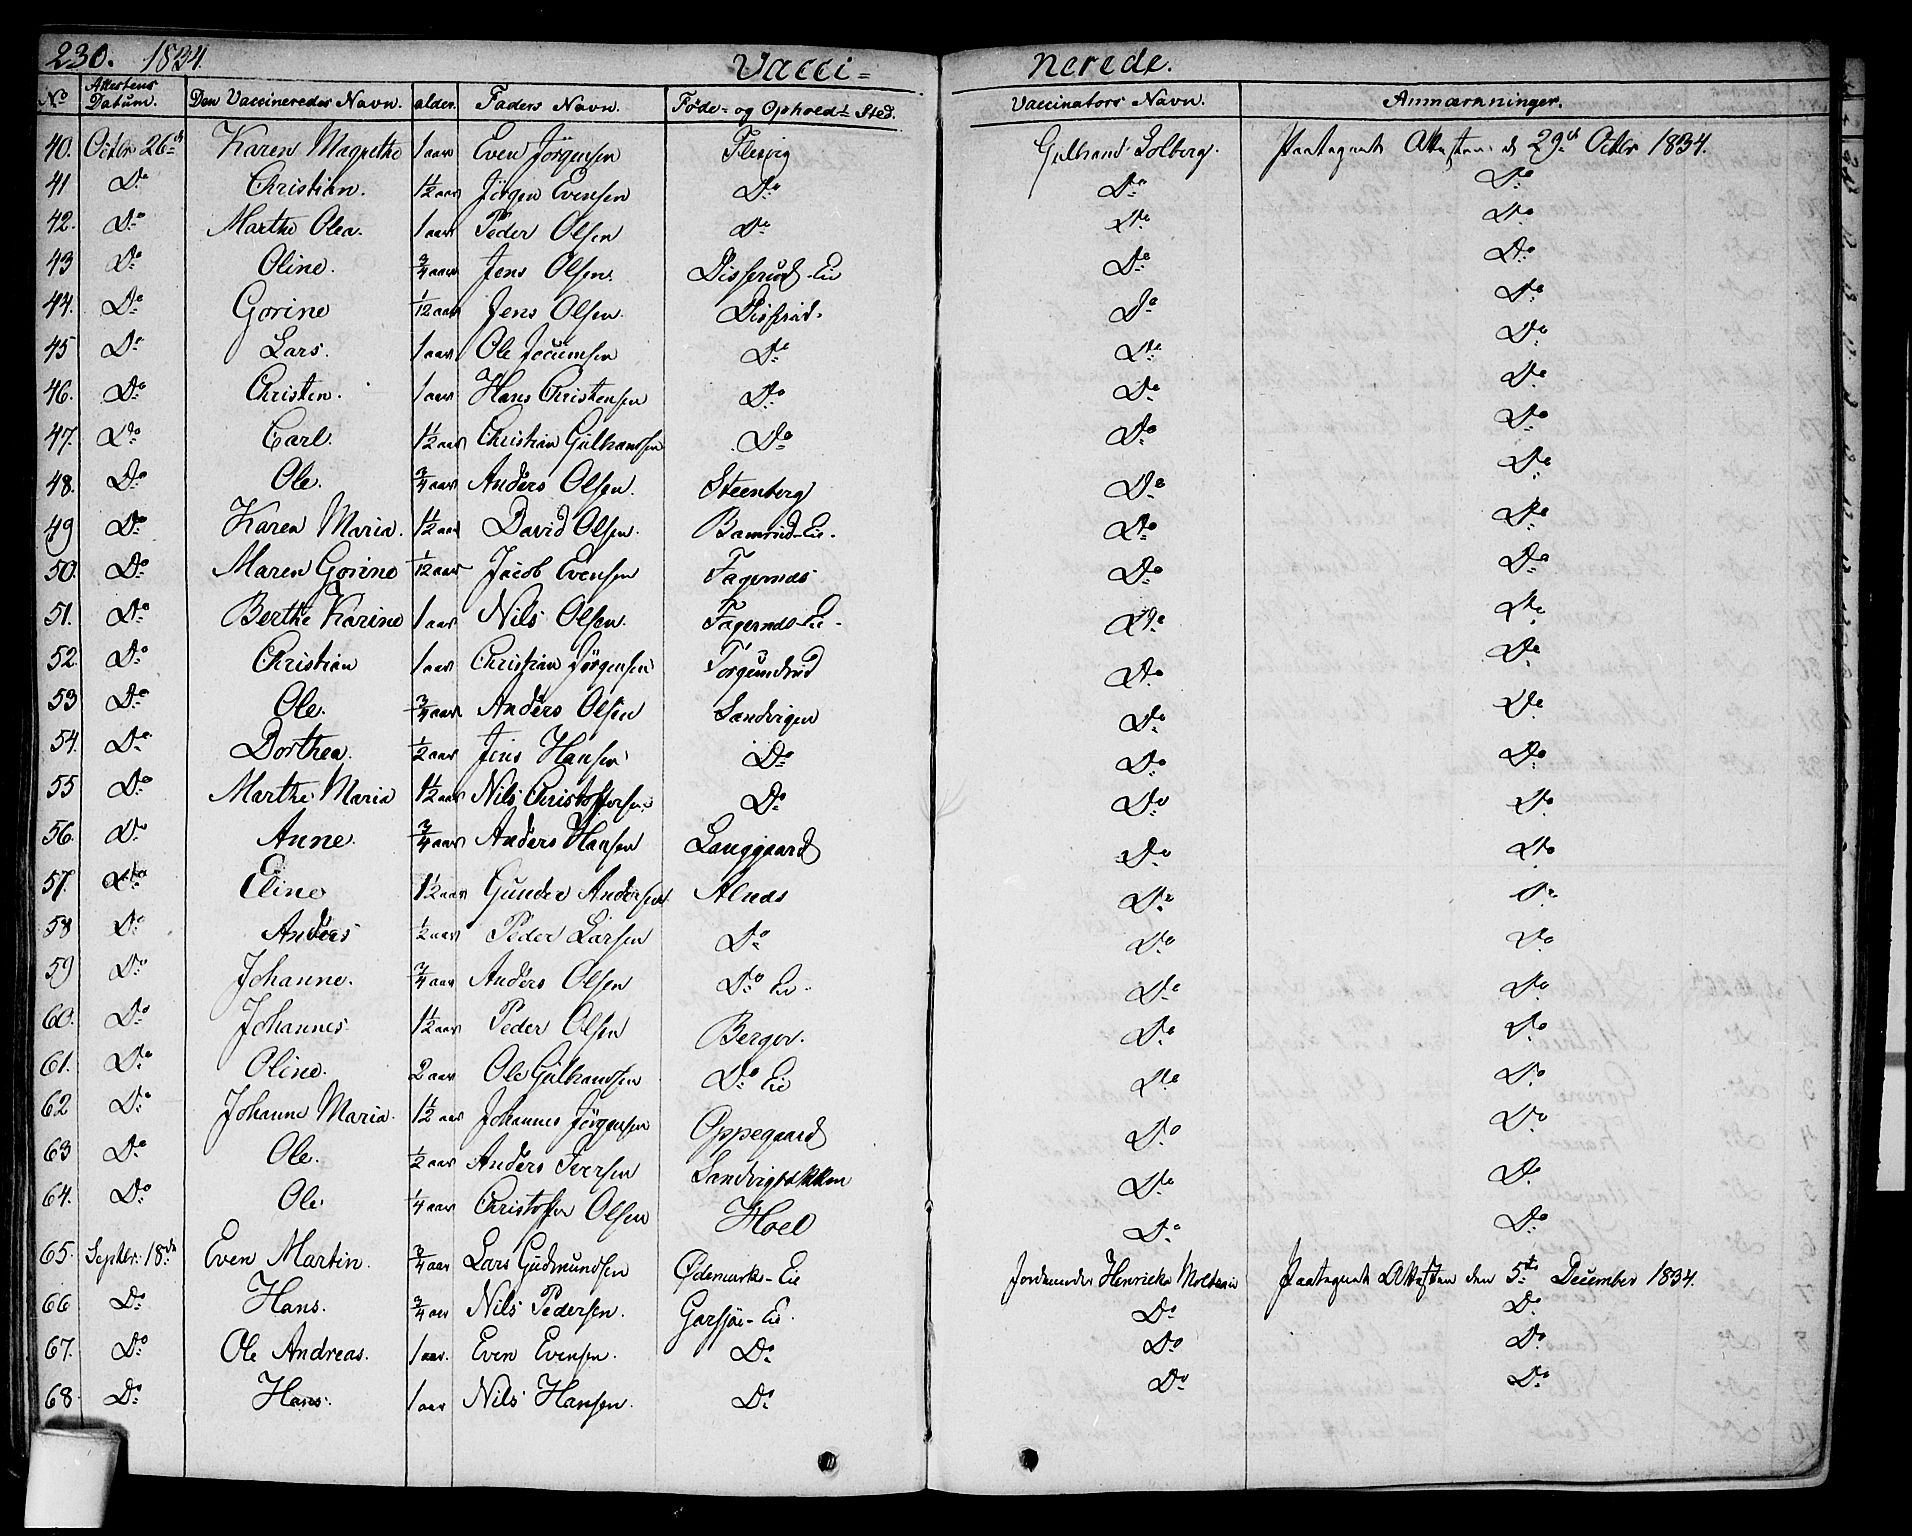 230. 1834. Vacci= nerede.
No Attestens Datum. Den Vaccineredes Navn. alder. Faders Navn. Føde- og Opholds Sted. Vaccinators Navn. Anmærkninger.
40. Octbr 26de Karen Magrethe 1 aar Even Jörgensen Flesvig Gulbrand Solberg. Paategnet Attesten d 29de Octbr 1834.
41 Do Christian. 1½ aar Jörgen Evensen Do Do Do
42. Do Marthe Olea. 1 aar Peder Olsen Do Do Do
43 Do Oline. ¾ aar Jens Olsen. Disserud-Eie Do Do
44. Do Gorine 1/12 aar Jens Olsen. Disserud. Do Do
45 Do Lars. 1 aar Ole Jocumsen Do Do Do
46. Do Christen. 1 aar Hans Christensen Do Do Do
47. Do Carl. 1½ aar Christian Gulbrandsen Do Do Do
48. Do Ole. ¾ aar Anders Olsen. Steenberg Do Do
49 Do Karen Maria. 1½ aar David Olsen. Bamrud-Eie. Do Do
50. Do Maren Gorine 1/12 aar Jacob Evensen Fagernæs Do Do
51. Do Berthe Karine 1 aar Nils Olsen. Fagernæs-Eie. Do Do
52. Do Christian 1 aar Christian Jörgensen Torgundrud Do Do
53 Do Ole. ¾ aar Anders Olsen Sandvigen Do Do
54. Do Dorthea. ½ aar Jens Hansen Do Do Do
55 Do Marthe Maria 1½ aar Nils Christoffersen Do Do Do
56. Do Anne. ¾ aar Anders Hansen Langgaard Do Do
57. Do Eline 1½ aar Gunder Andersen Alnæs Do Do
58 Do Anders ½ aar Peder Larsen Do Do Do
59 Do Johanne. ¾ aar Anders Olsen Do Eie. Do Do
60. Do Johannes. 1½ aar Peder Olsen Berger. Do Do
61. Do Oline. 2 aar Ole Gulbrandsen Do Eie Do Do
62 Do Johanne Maria. 1½ aar Johannes Jörgensen Oppegaard Do Do
63 Do Ole. ½ aar Anders Iversen Sandvigbakken Do Do
64. Do Ole ¼ aar Christoffer Olsen Hoel Do Do
65. Septbr. 18de Even Martin. ¾ aar Lars Gudmundsen Ødemarks-Eie Jordemoder Henricka Paategnet Attesten den 5te December 1834.
66 Do Hans. ¾ aar Nils Pedersen. Garsjøe-Eie. Do Do
67. Do Ole Andreas. 1 aar. Even Evensen. Do Do Do
68 Do Hans. 1 aar Nils Hansen. Do Do Do